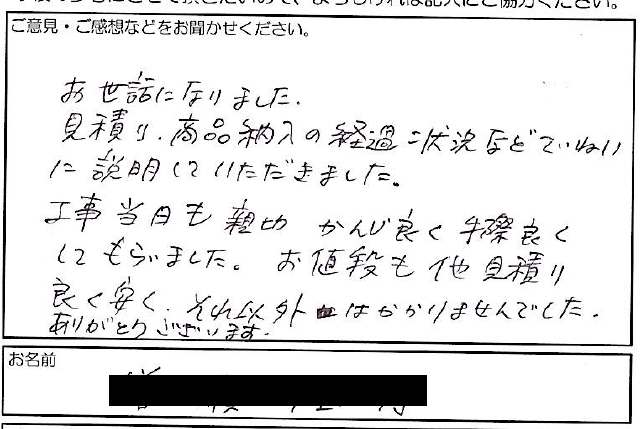 ご意見・ご感想などをお聞かせください。
お世話になりました.
見積り、商品納入の経過状況などていねい
に説明していただきました。
工事当日も親切 かんじ良く手際良く
してもらいました。お値段も他見積り
良く安く、それ以外はかかりませんでした.
ありがとうございます.
お名前